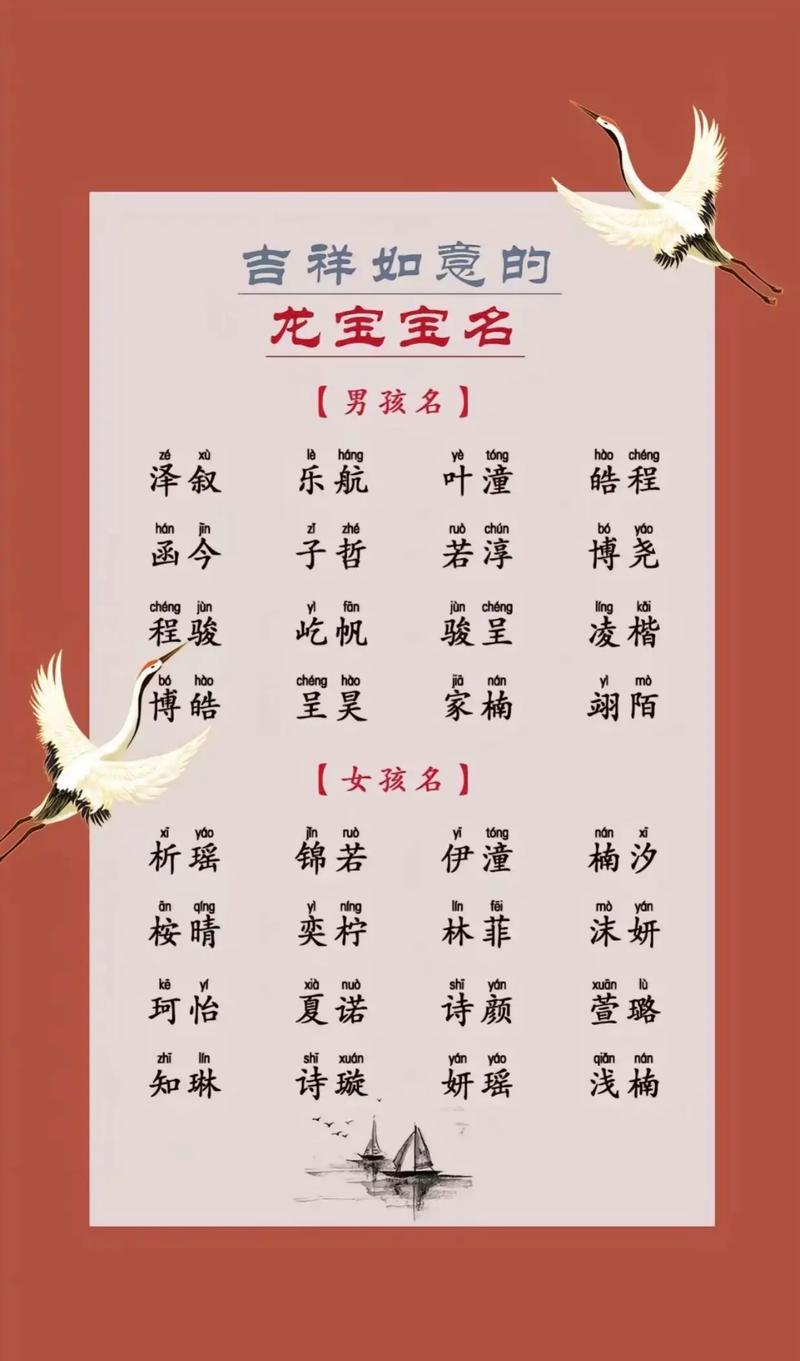 吉祥如意的
龙宝宝名
【男孩名】
zé xù lè háng yè tóng hào chéng
泽叙 乐航 叶潼 皓程
hán jīn zǐ zhé ruò chún bó yáo
函今 子哲 若淳 博尧
chéng jùn yì fān jùn chéng líng kǎi
程骏 屹帆 骏呈 凌楷
bó hào chéng hào jiā nán yì mò
博皓 呈昊 家楠 翊陌
【女孩名】
xī yáo jǐn ruò yī tóng nán xī
析瑶 锦若 伊潼 楠汐
ān qíng yì níng lín fēi mò yán
桉晴 奕柠 林菲 沫妍
kē yí xià nuò shī yán xuān lù
珂怡 夏诺 诗颜 萱璐
zhī lín shī xuán yán yáo qiǎn nán
知琳 诗璇 妍瑶 浅楠